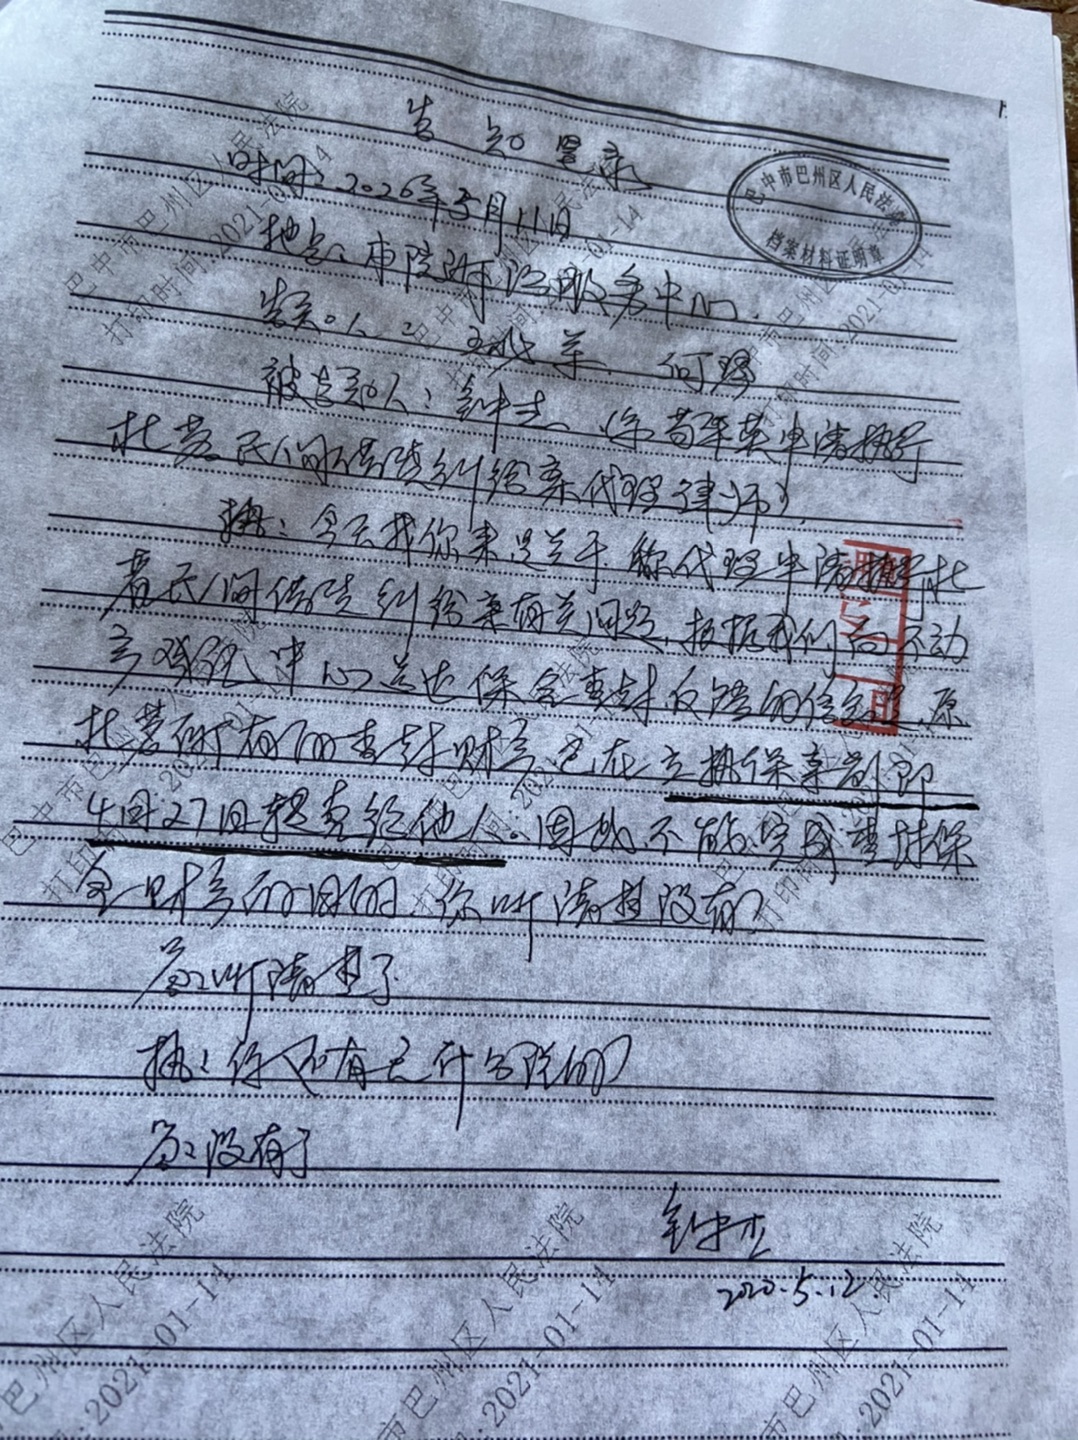 告知笔录
时间：2020年5月11日
地点：本院诉讼服务中心.
告知人：何
被告知人：钟杰（系苟 英申请执行
杜 民间借贷纠纷案代理律师）.
执：今天找你来是关于你代理申请执行杜
民间借贷纠纷案有关问题，根据我们向不动
产登记中心送达保全查封反馈的信息，原
杜 所有的查封财产已在立执保案前即
4月27日 给他人。因此不能完成查封保
全财产的目的，你听清楚没有？
应：听清楚了
执：你还有无什么说的？
应：没有了
钟杰
2020.5.12
巴中市巴州区人民法院
档案材料证明章
巴中市巴州区人民法院
打印时间:2021-01-14